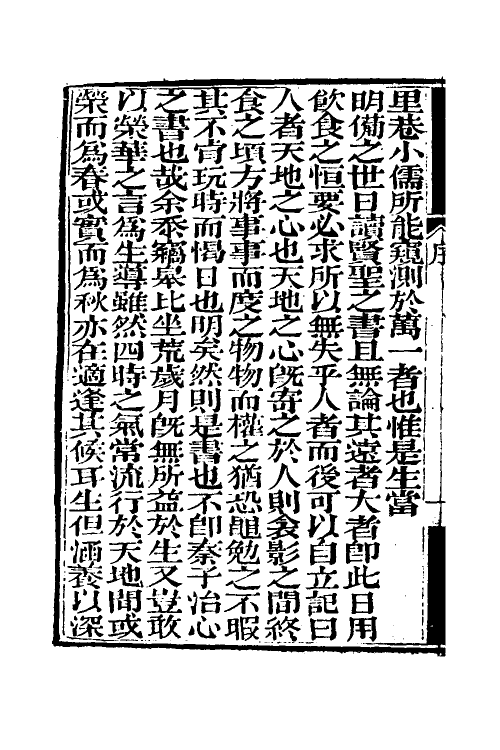 序
里巷小儒所能窺測於萬一者也惟是生當
明僃之世日讀賢聖之書且無論其遠者大者卽此日用
飲食之恒要必求所以無失乎人者而後可以自立記曰
人者天地之心也天地之心旣寄之於人則衾影之間終
食之頃方將事事而度之物物而權之猶恐黽勉之不暇
其不肎玩時而愒日也明矣然則是書也不卽秦子治心
之書也哉余忝竊皋比坐荒歲月旣無所益於生又豈敢
以榮華之言爲生導雖然四時之氣常流行於天地間或
榮而爲春或實而爲秋亦在適逢其候耳生但涵養以深